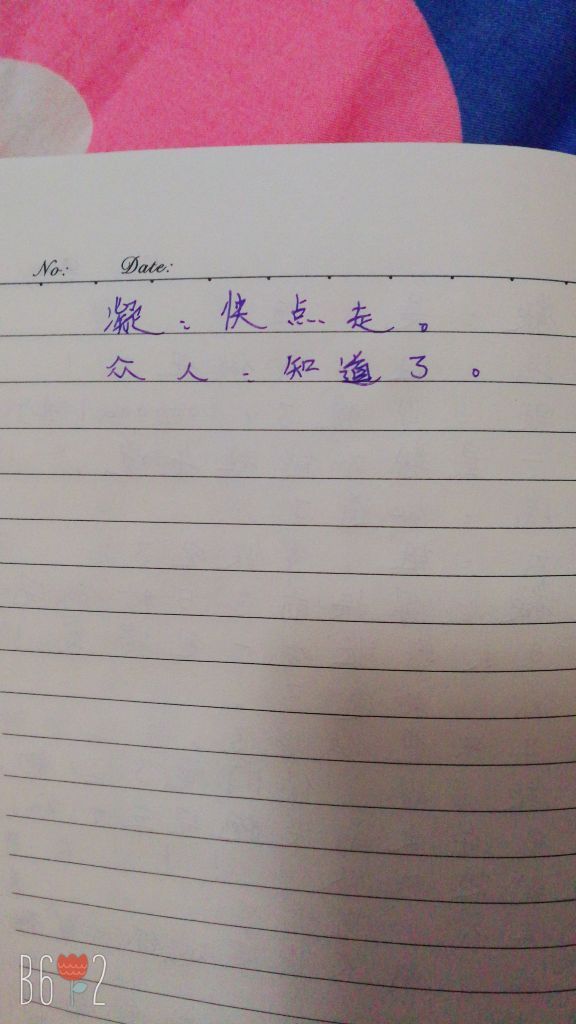 No: Date:
凝：快点走。
众人：知道了。
B612